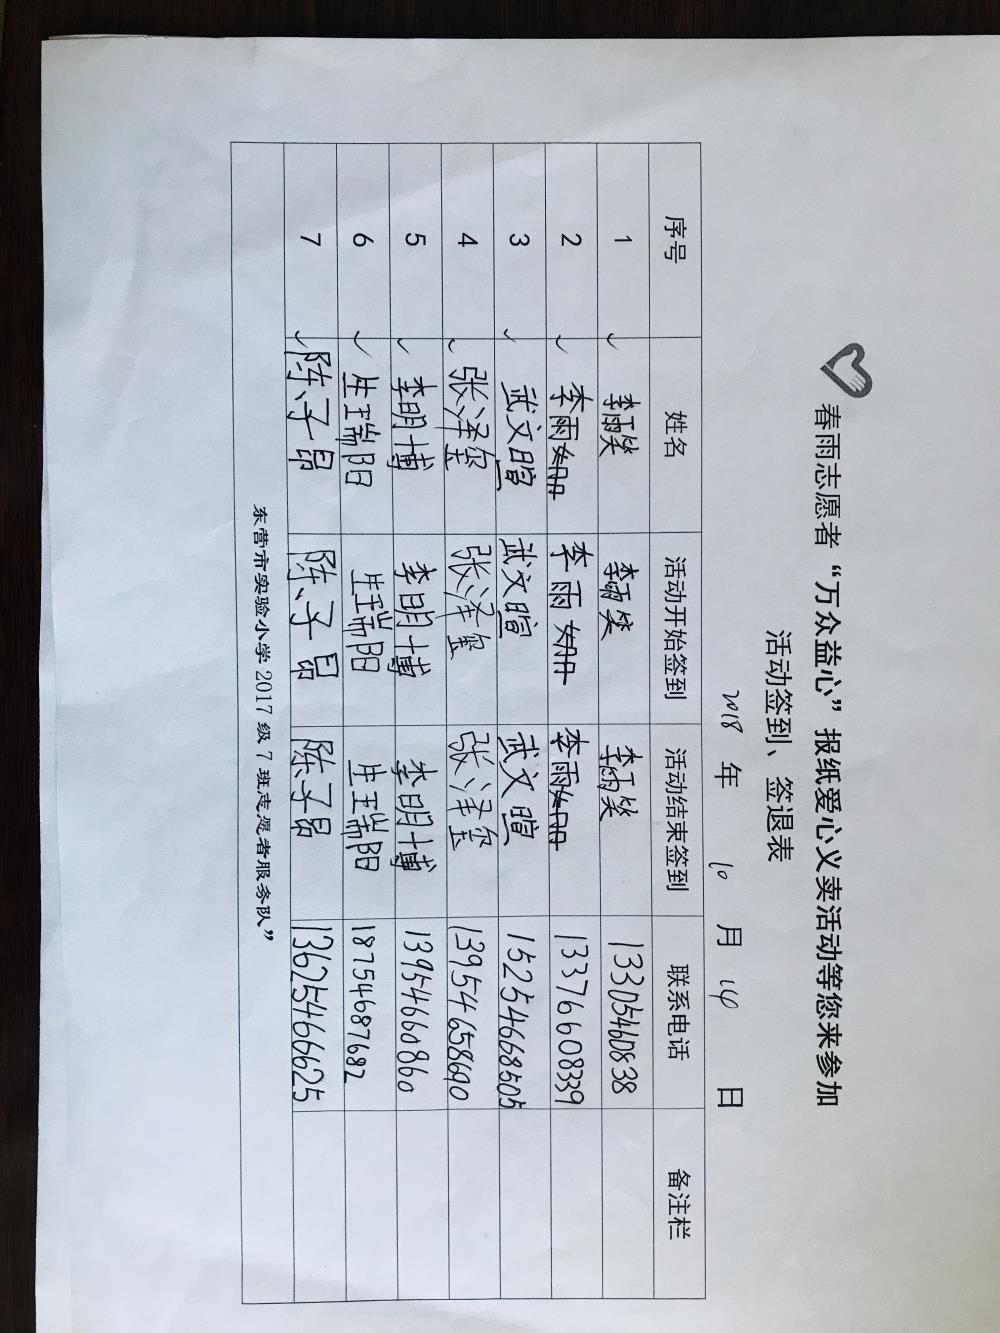 春雨志愿者“万众益心”报纸爱心义卖活动等您来参加
活动签到、签退表
2018 年 10 月 14 日
序号 姓名 活动开始签到 活动结束签到 联系电话 备注栏
1 李雨笑 李雨笑 李雨笑 13305460838
2 李雨姗 李雨姗 李雨姗 13376608339
3 武文暄 武文暄 武文暄 15254668505
4 张泽玺 张泽玺 张泽玺 13954658690
5 李明博 李明博 李明博 13954660860
6 生瑞阳 生瑞阳 生瑞阳 18754687682
7 陈子昂 陈子昂 陈子昂 13625466625
东营市实验小学 2017 级 7 班志愿者服务队”